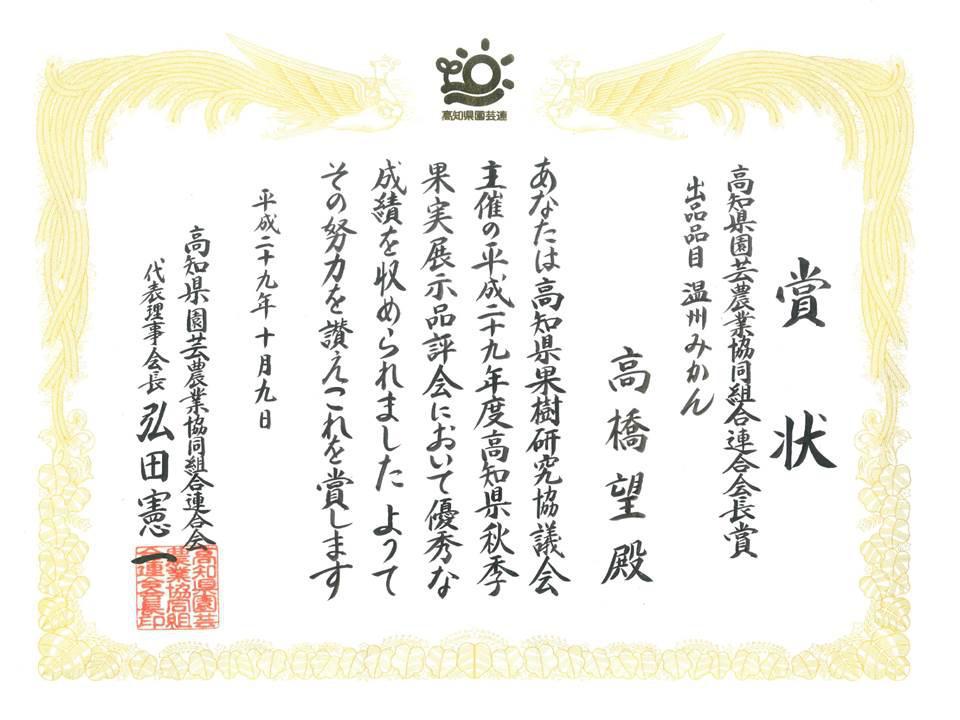 高知県園芸連
賞状
高知県園芸農業協同組合連合会長賞
出品品目 温州みかん
高橋望殿
あなたは高知県果樹研究協議会
主催の平成二十九年度高知県秋季
果実展示品評会において優秀な
成績を収められました よって
その努力を讃えこれを賞します
平成二十九年十月九日
高知県園芸農業協同組合連合会
代表理事会長 弘田憲一
高知県園芸
農業協同組
合連合会長印